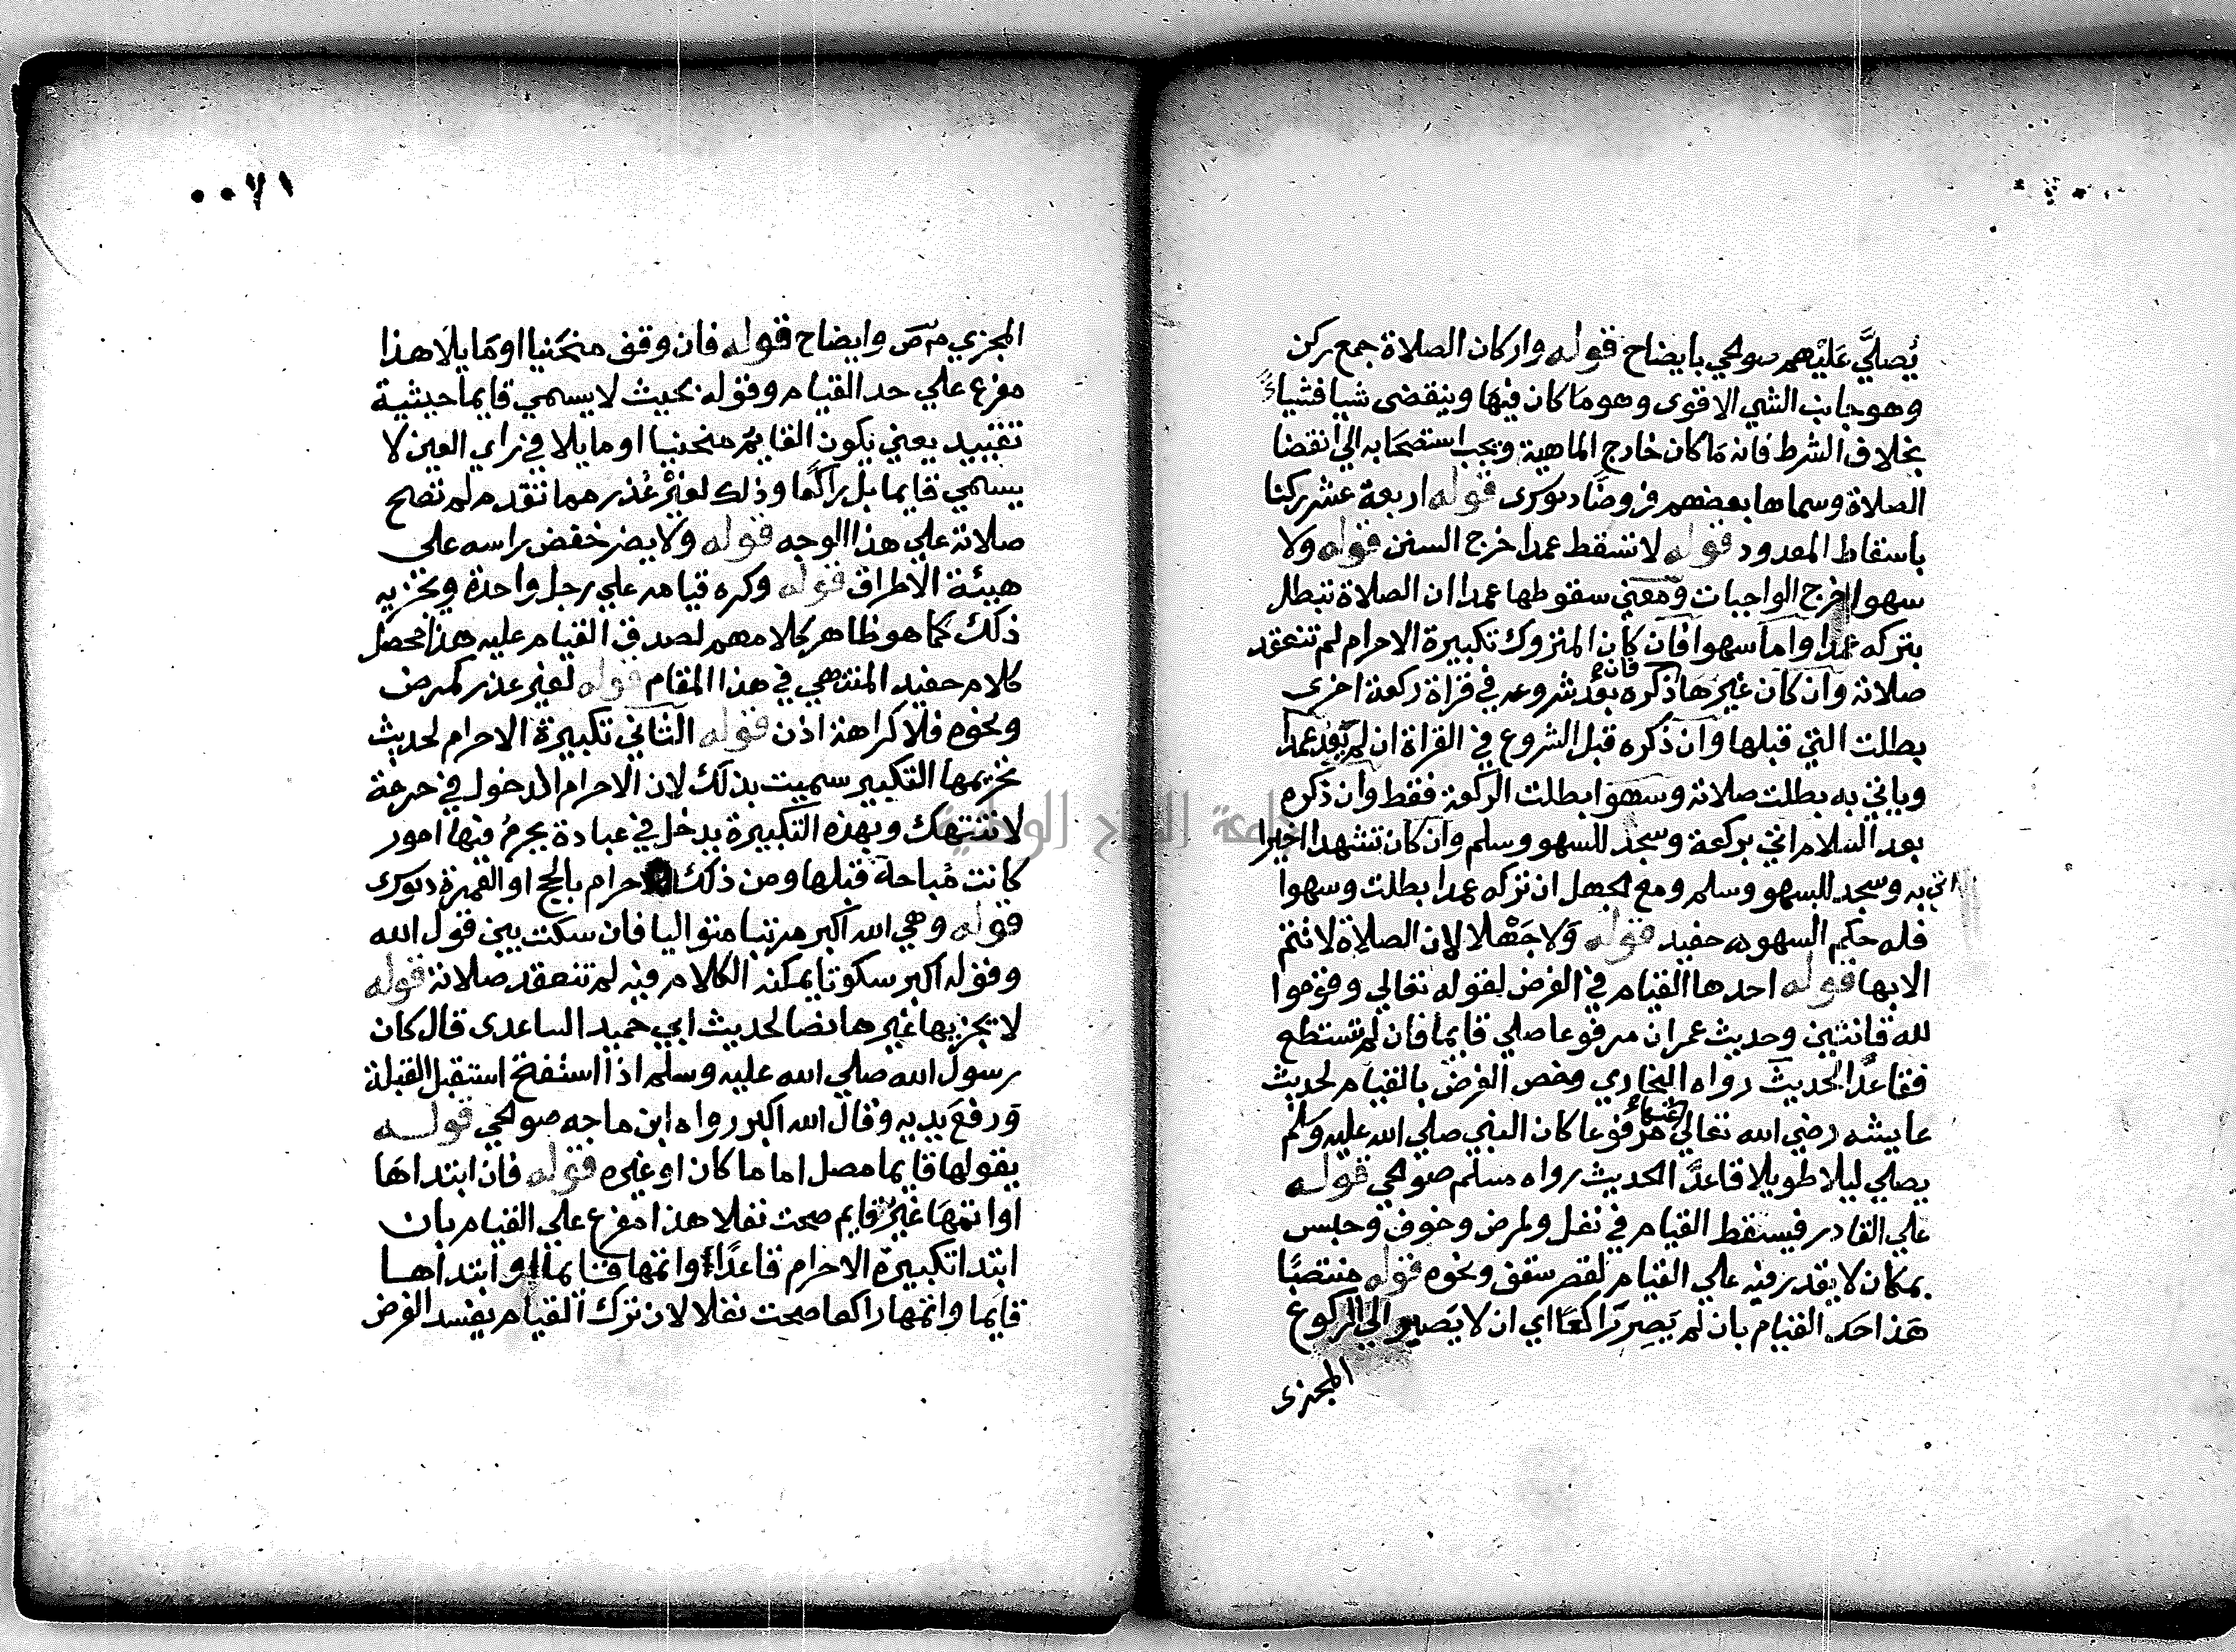 يُصلىَّ عَليْهم صولحي بايضاح قوله واركان الصلاة جمع ركن
وهو جانب الشي الاقوى وهو ما كان فيها وينقضى شيا فشياء
بخلاف الشرط فانه ما كان خارج الماهية ويجب استصحابه الي انقضا
الصلاة وسماها بعضهم فروضًا دنوكرى قوله اربعة عشر ركنا
باسقاط المعدود قوله لا تسقط عمدا خرج السنن قوله ولا
سهوا خرج الواجبات ومعني سقوطها عمدا ان الصلاة تبطل
بتركه عمدا واما سهوا فان كان المتروك تكبيرة الاحرام لم تنعقد
صلاته وان كان غيرها فانه ذكره بعد شروعه في قراة ركعة اخرى
بطلت التي قبلها وان ذكره قبل الشروع في القراة ان لم يَعُد عمدا
وياتي به بطلت صلاته وسهوا بطلت الركعة فقط وان ذكره
بعد السلام اتي بركعة وسجد للسهو وسلم وان كان تشهدا اخيرا
اتي به وسجد للسهو وسلم ومع الجهل ان تركه عمدا بطلت وسهوا
فله حكم السهو حفيد قوله وَلا جَهْلا لان الصلاة لا تتم
الا بها قوله احدها القيام في الفرض لقوله تعالي وقوموا
لله قانتين وحديث عمران مرفوعا صلي قايما فان لم تستطع
فقاعدًا الحديث رواه البخاري وخص الفرض بالقيام لحديث
عايشه رضي الله تعالي عنها مرفوعا كان النبي صلي الله عليه وسلم
يصلي ليلا طويلا قاعدًا الحديث رواه مسلم صولحي قوله
علي القادر فيسقط القيام في نفل ولمرض وخوف وحبس
بمكان لا يقدر فيه علي القيام لقصر سقف ونحوه قوله منتصبًا
هَذا حَد القيام بان لم يَصِر رَاكعًا اي ان لا يَصير الي الركوع
المجزى
المجزي م ص وايضاح قوله فان وقف منحنيا او مَايلا هذا
مفرع علي حد القيام وقوله بحيث لا يسمي قايما حيثية
تقييد يعني يكون القايم منحنيا او مايلا في راي العين لا
يسمي قايما بل راكعًا وذلك لغير عُذر مما تقدم لم تصح
صلاته علي هذا الوجه قوله ولا يضر خفض راسه على
هيئة الاطراق قوله وكره قيامه علي رجل واحدة ويجزيه
ذلك كما هو ظاهر كلامهم لصدق القيام عليه هذا محصل
كلام حفيد المنتهي في هذا المقام قوله لغير عذر كمرض
ونحوه فلا كراهة اذن قوله الثاني تكبيرة الاحرام لحديث
تحريمها التكبير سميت بذلك لان الاحرام الدخول في حرمة
لا تنتهك وبهذه التكبيرة يدخل في عبادة يحرمُ فيها امور
كانت مُباحة قبلها ومن ذلك الاحرام بالحج او العمرة دنوكرى
قوله وهي الله اكبر مرتبا متواليا فان سكت بين قول الله
وقوله اكبر سكوتا يمكنه الكلام فيه لم تنعقد صلاته قوله
لا يجزيها غيرها نصا لحديث ابي حميد الساعدى قال كان
رسول الله صلي الله عليه وسلم اذا استفتح استقبل القبلة
وَرفعَ يديه وقال الله اكبر رواه ابن ماجه صولحي قوله
يقولها قايما مصل اماما كان او غيره قوله فان ابتداها
او اتمهَا غيرُ قايم صحت نفلا هذا مفرع علي القيام بان
ابتدا تكبيرة الاحرام قاعدًا واتمها قايما او ابتداها
قايما واتمها راكعا صحت نفلا لان ترك القيام يفسد الفرض